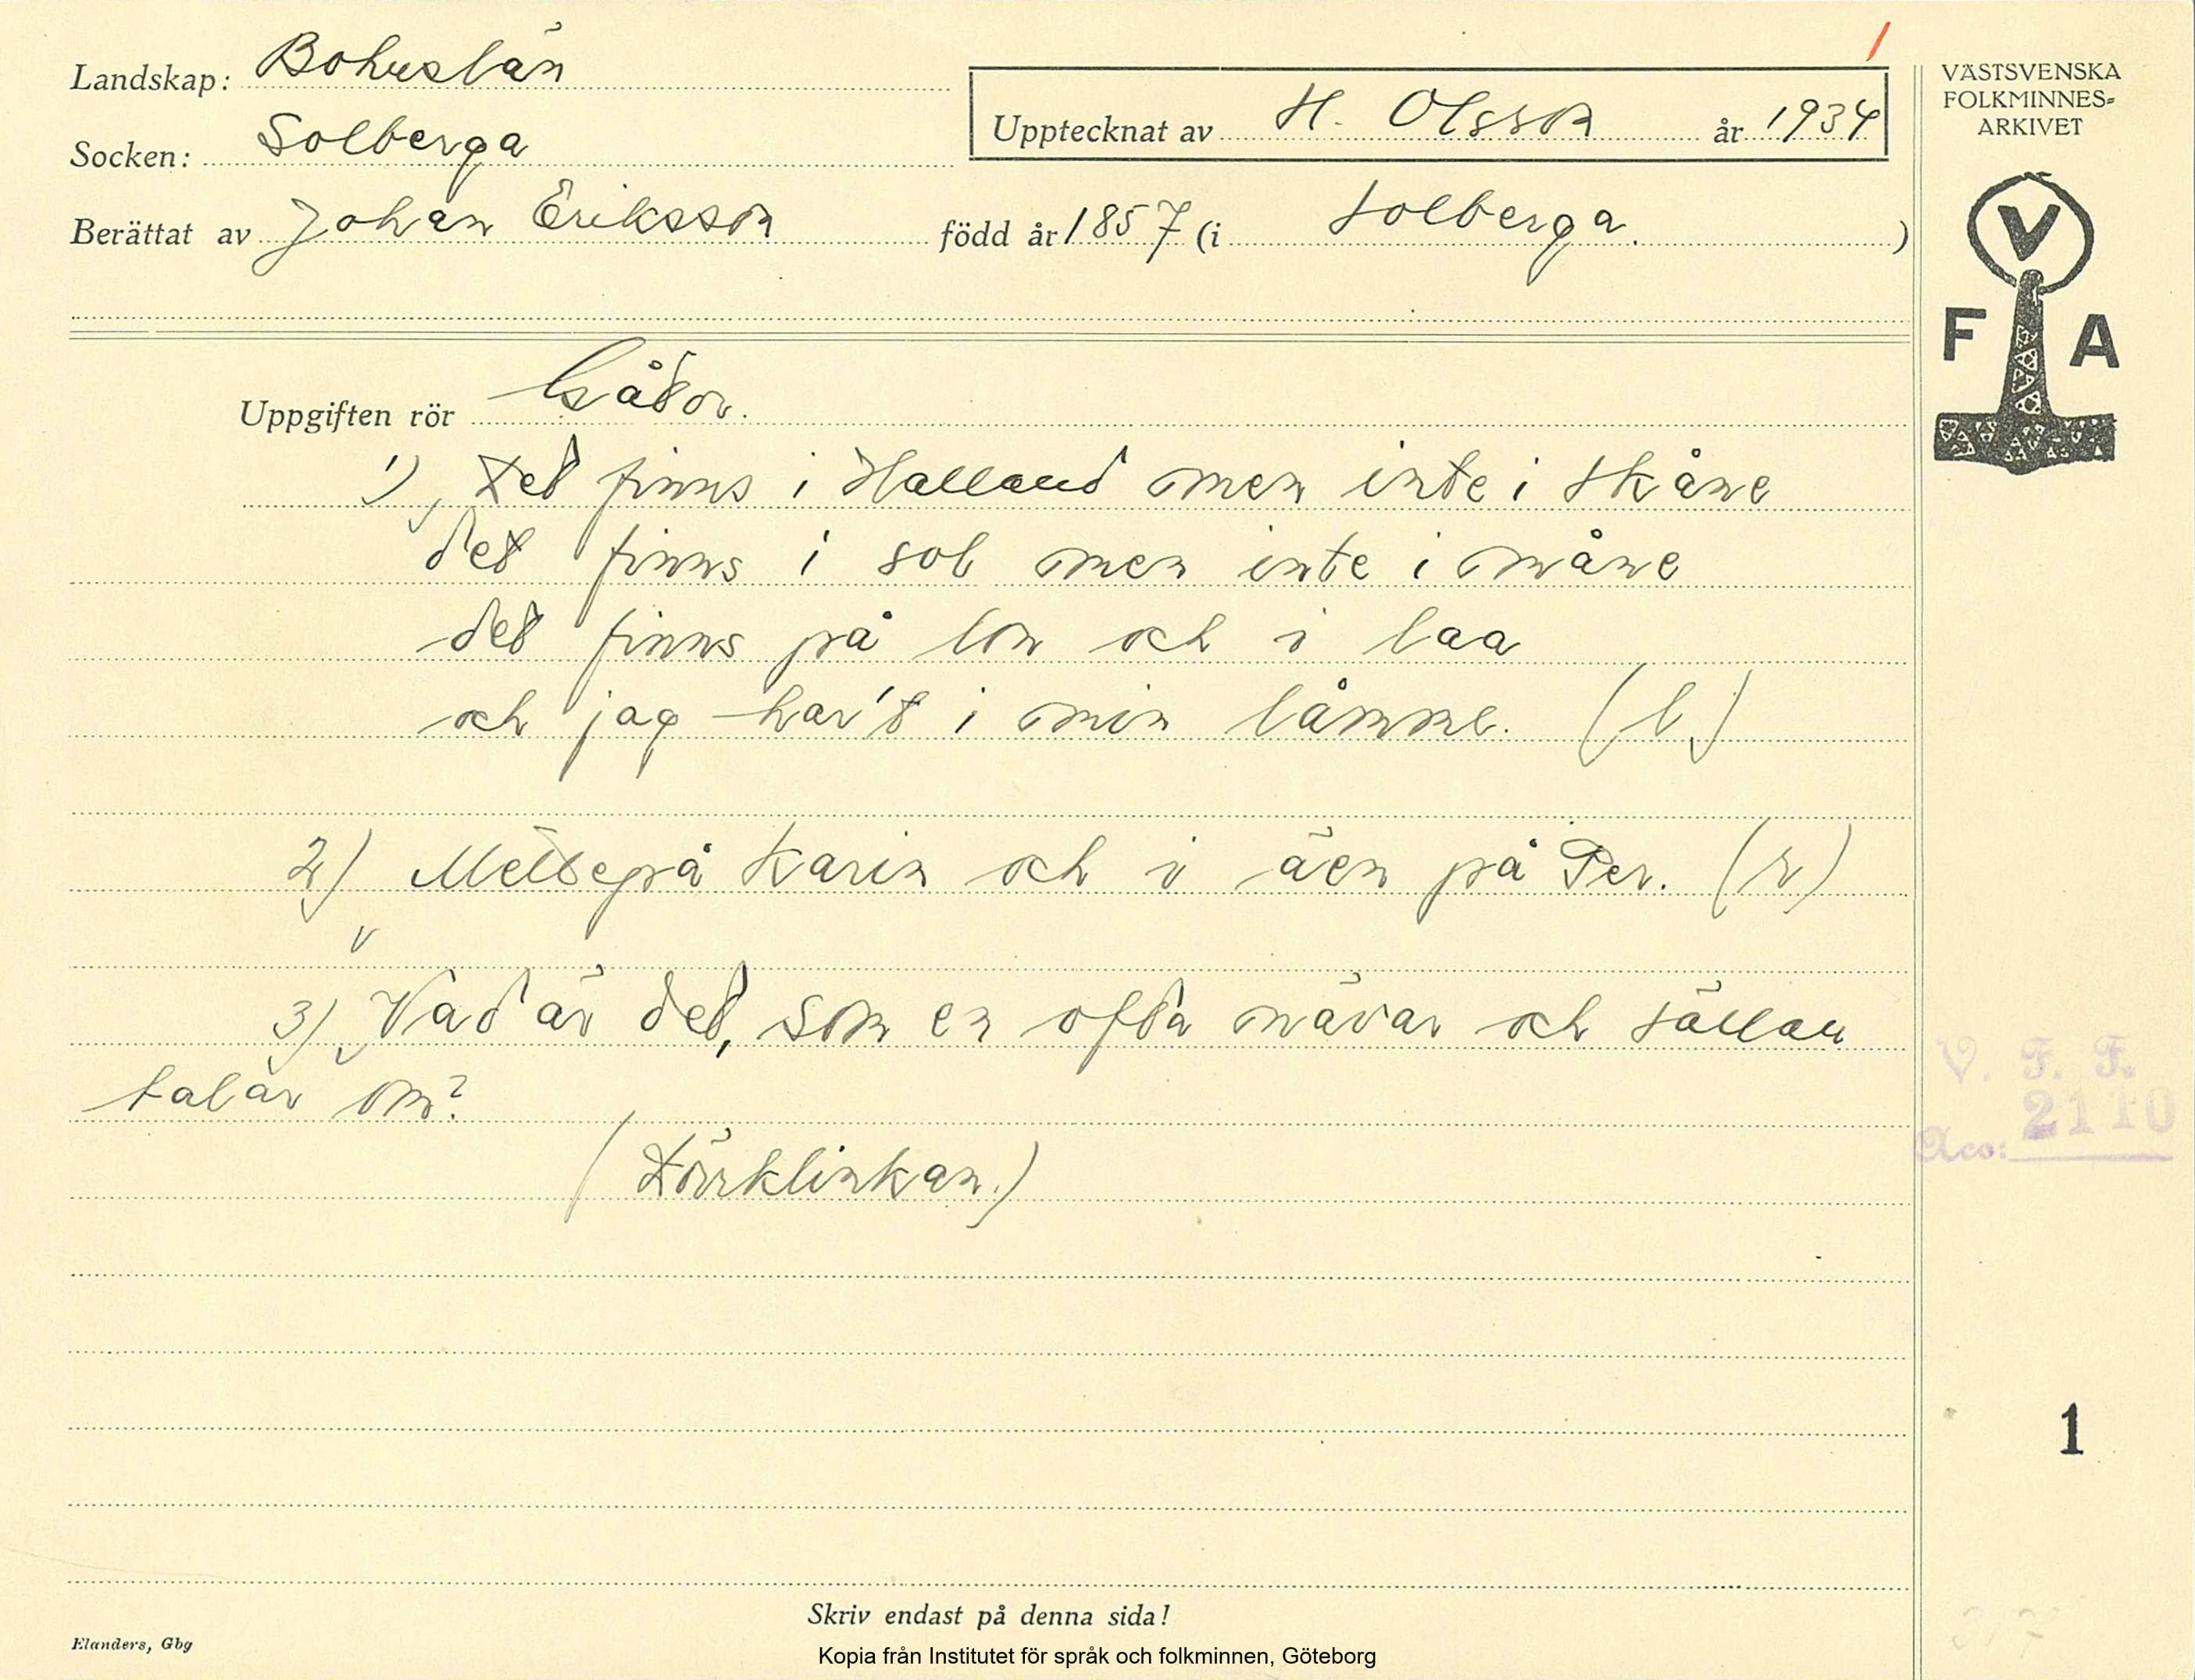 Landskap: Bohuslän
Socken: Solberga
Upptecknat av H. Olsson år 1934
Berättat av Johan Eriksson född år 1857 (i Solberga.)
VÄSTSVENSKA
FOLKMINNES-
ARKIVET
V
F A
Uppgiften rör Gåtor.
1) Det finns i Halland men inte i Skåne
det finns i sol men inte i måne
det finns på lon och i laa
och jag har't i min låmme. (l)
2) Mettepå Karin och i äen på Per. (r)
3) Vad är det, som en ofta nävar och sällan
talar om?
(Dörrklinkan.)
V. F. F.
Acc: 2110
1
Skriv endast på denna sida!
Elanders, Gbg
Kopia från Institutet för språk och folkminnen, Göteborg